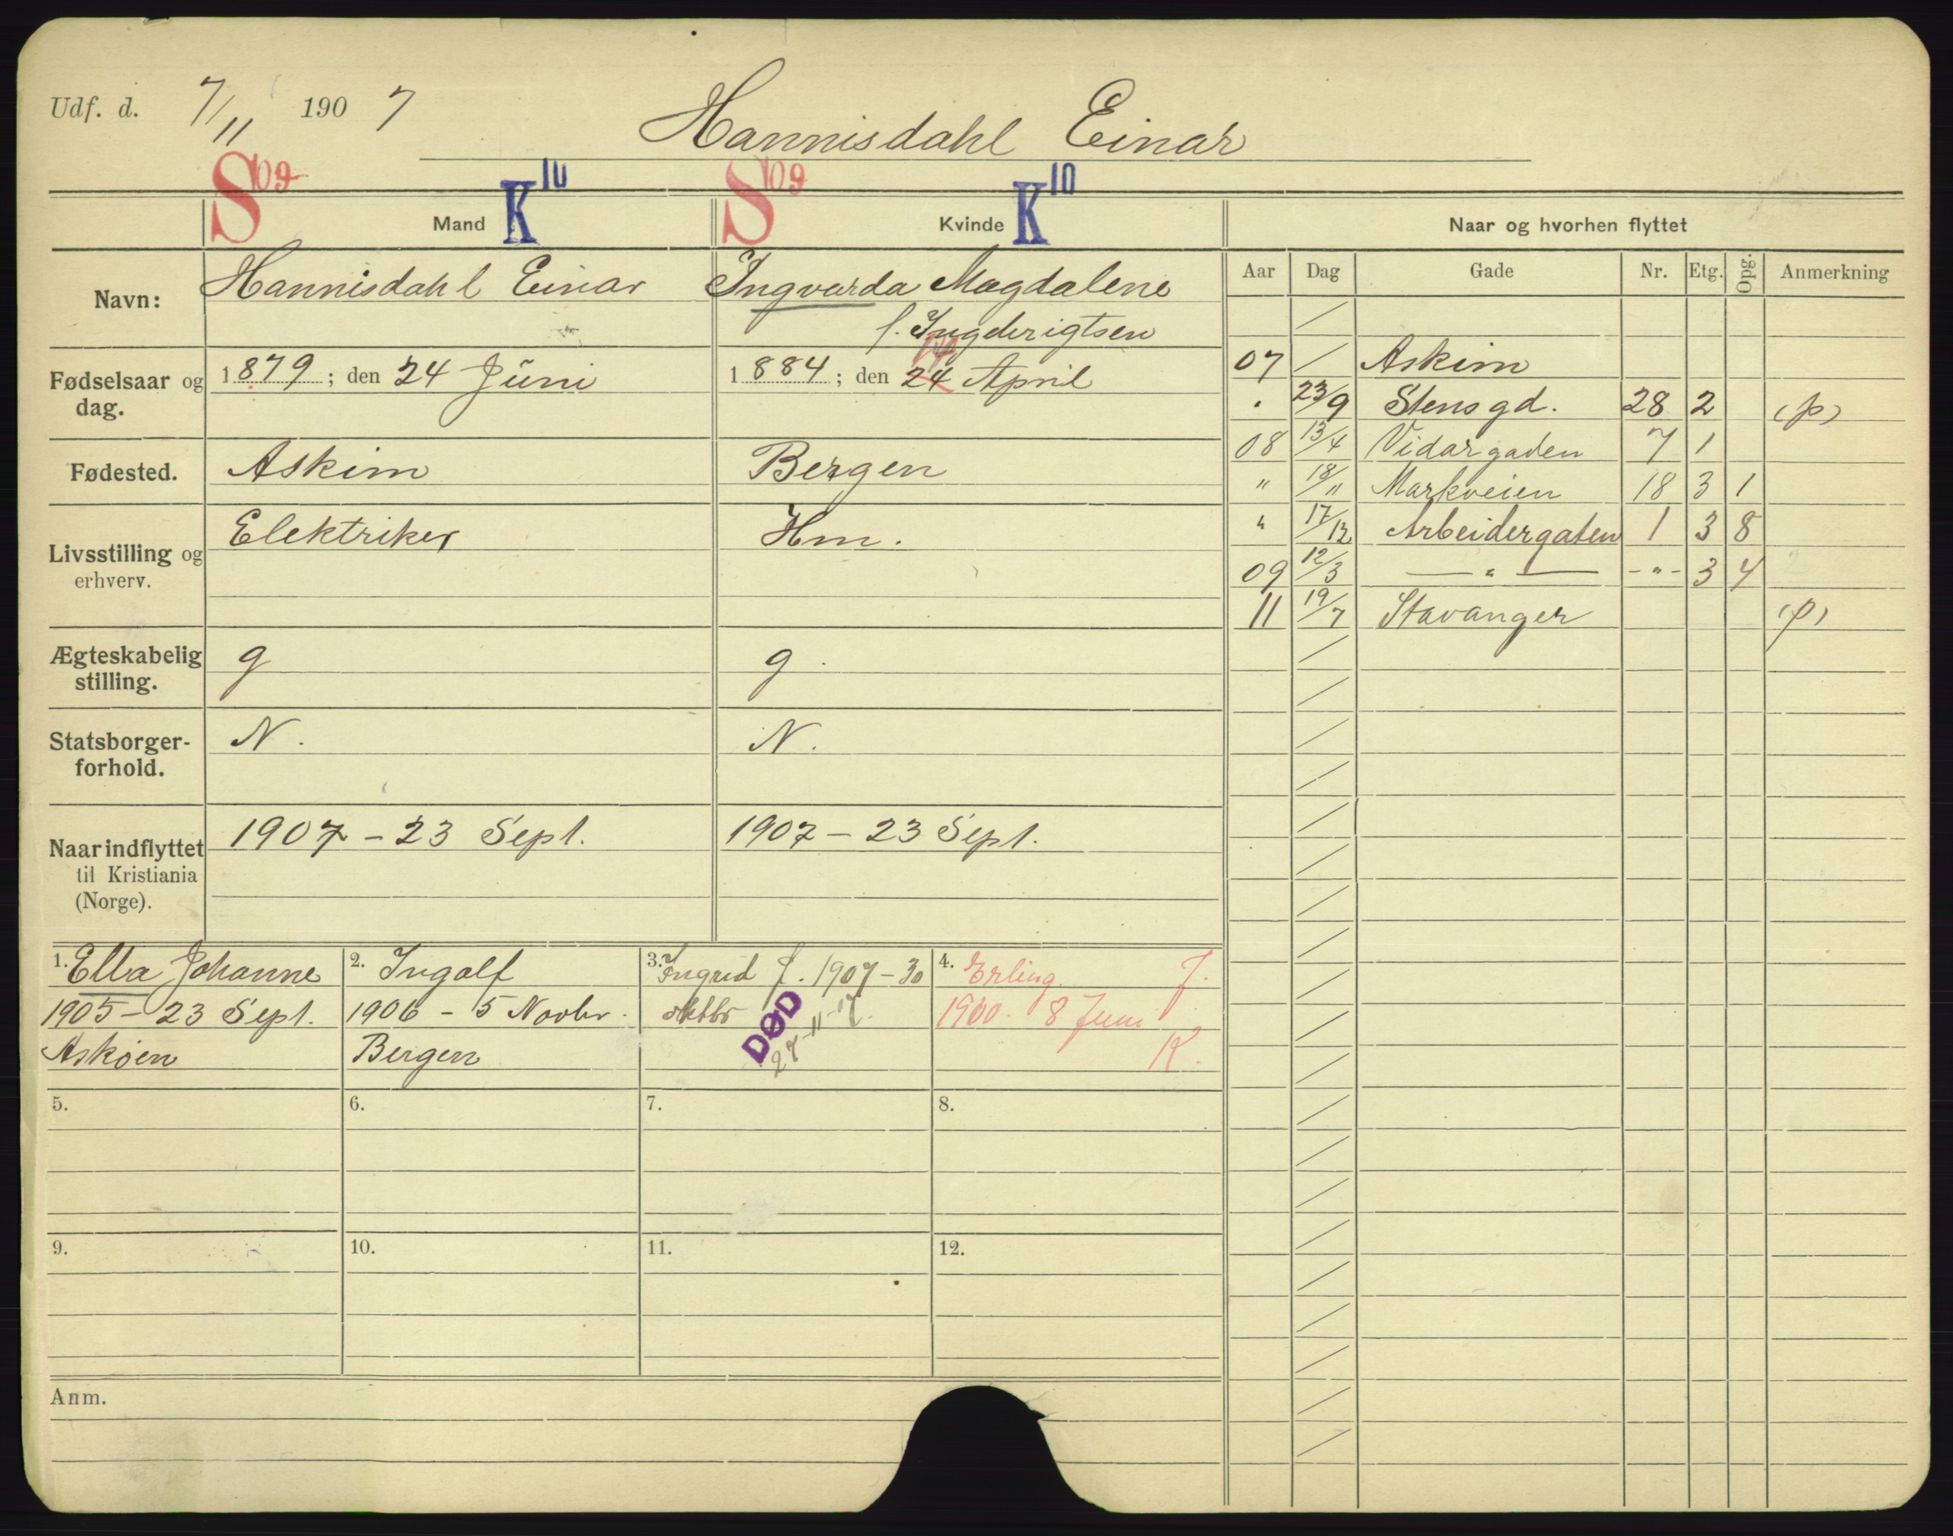 Udf. d. 7/11 1907
Hannisdahl Einar
S 09 K 10 S 09 K 10
Mand Kvinde Naar og hvorhen flyttet
Aar Dag Gade Nr. Etg. Opg. Anmerkning
Navn: Hannisdahl Einar Ingvarda Magdalene
f. Ingderigtsen
Fødselsaar og dag. 1879; den 24 Juni 1884; den 24 April
Fødested. Askim Bergen
Livsstilling og erhverv. Elektriker Hm.
Ægteskabelig stilling. g g.
Statsborgerforhold. N. N.
Naar indflyttet til Kristiania (Norge). 1907 - 23 Sept. 1907 - 23 Sept.
07 / Askim
. 23/9 Stensgd. 28 2 (p)
08 13/4 Vidargaden 7 1
" 18/11 Markveien 18 3 1
" 17/12 Arbeidergaten 1 3 8
09 12/3 — " — - " - 3 4
11 19/7 Stavanger (p)
1. Ella Johanne
1905 - 23 Sept.
Askøen
2. Ingolf
1906 - 5 Novbr.
Bergen
3. Ingrid f. 1907 - 30
oktbr
DØD
27-11-17.
4. Erling f.
8 Juni
K.
5.
6.
7.
8.
9.
10.
11.
12.
Anm.